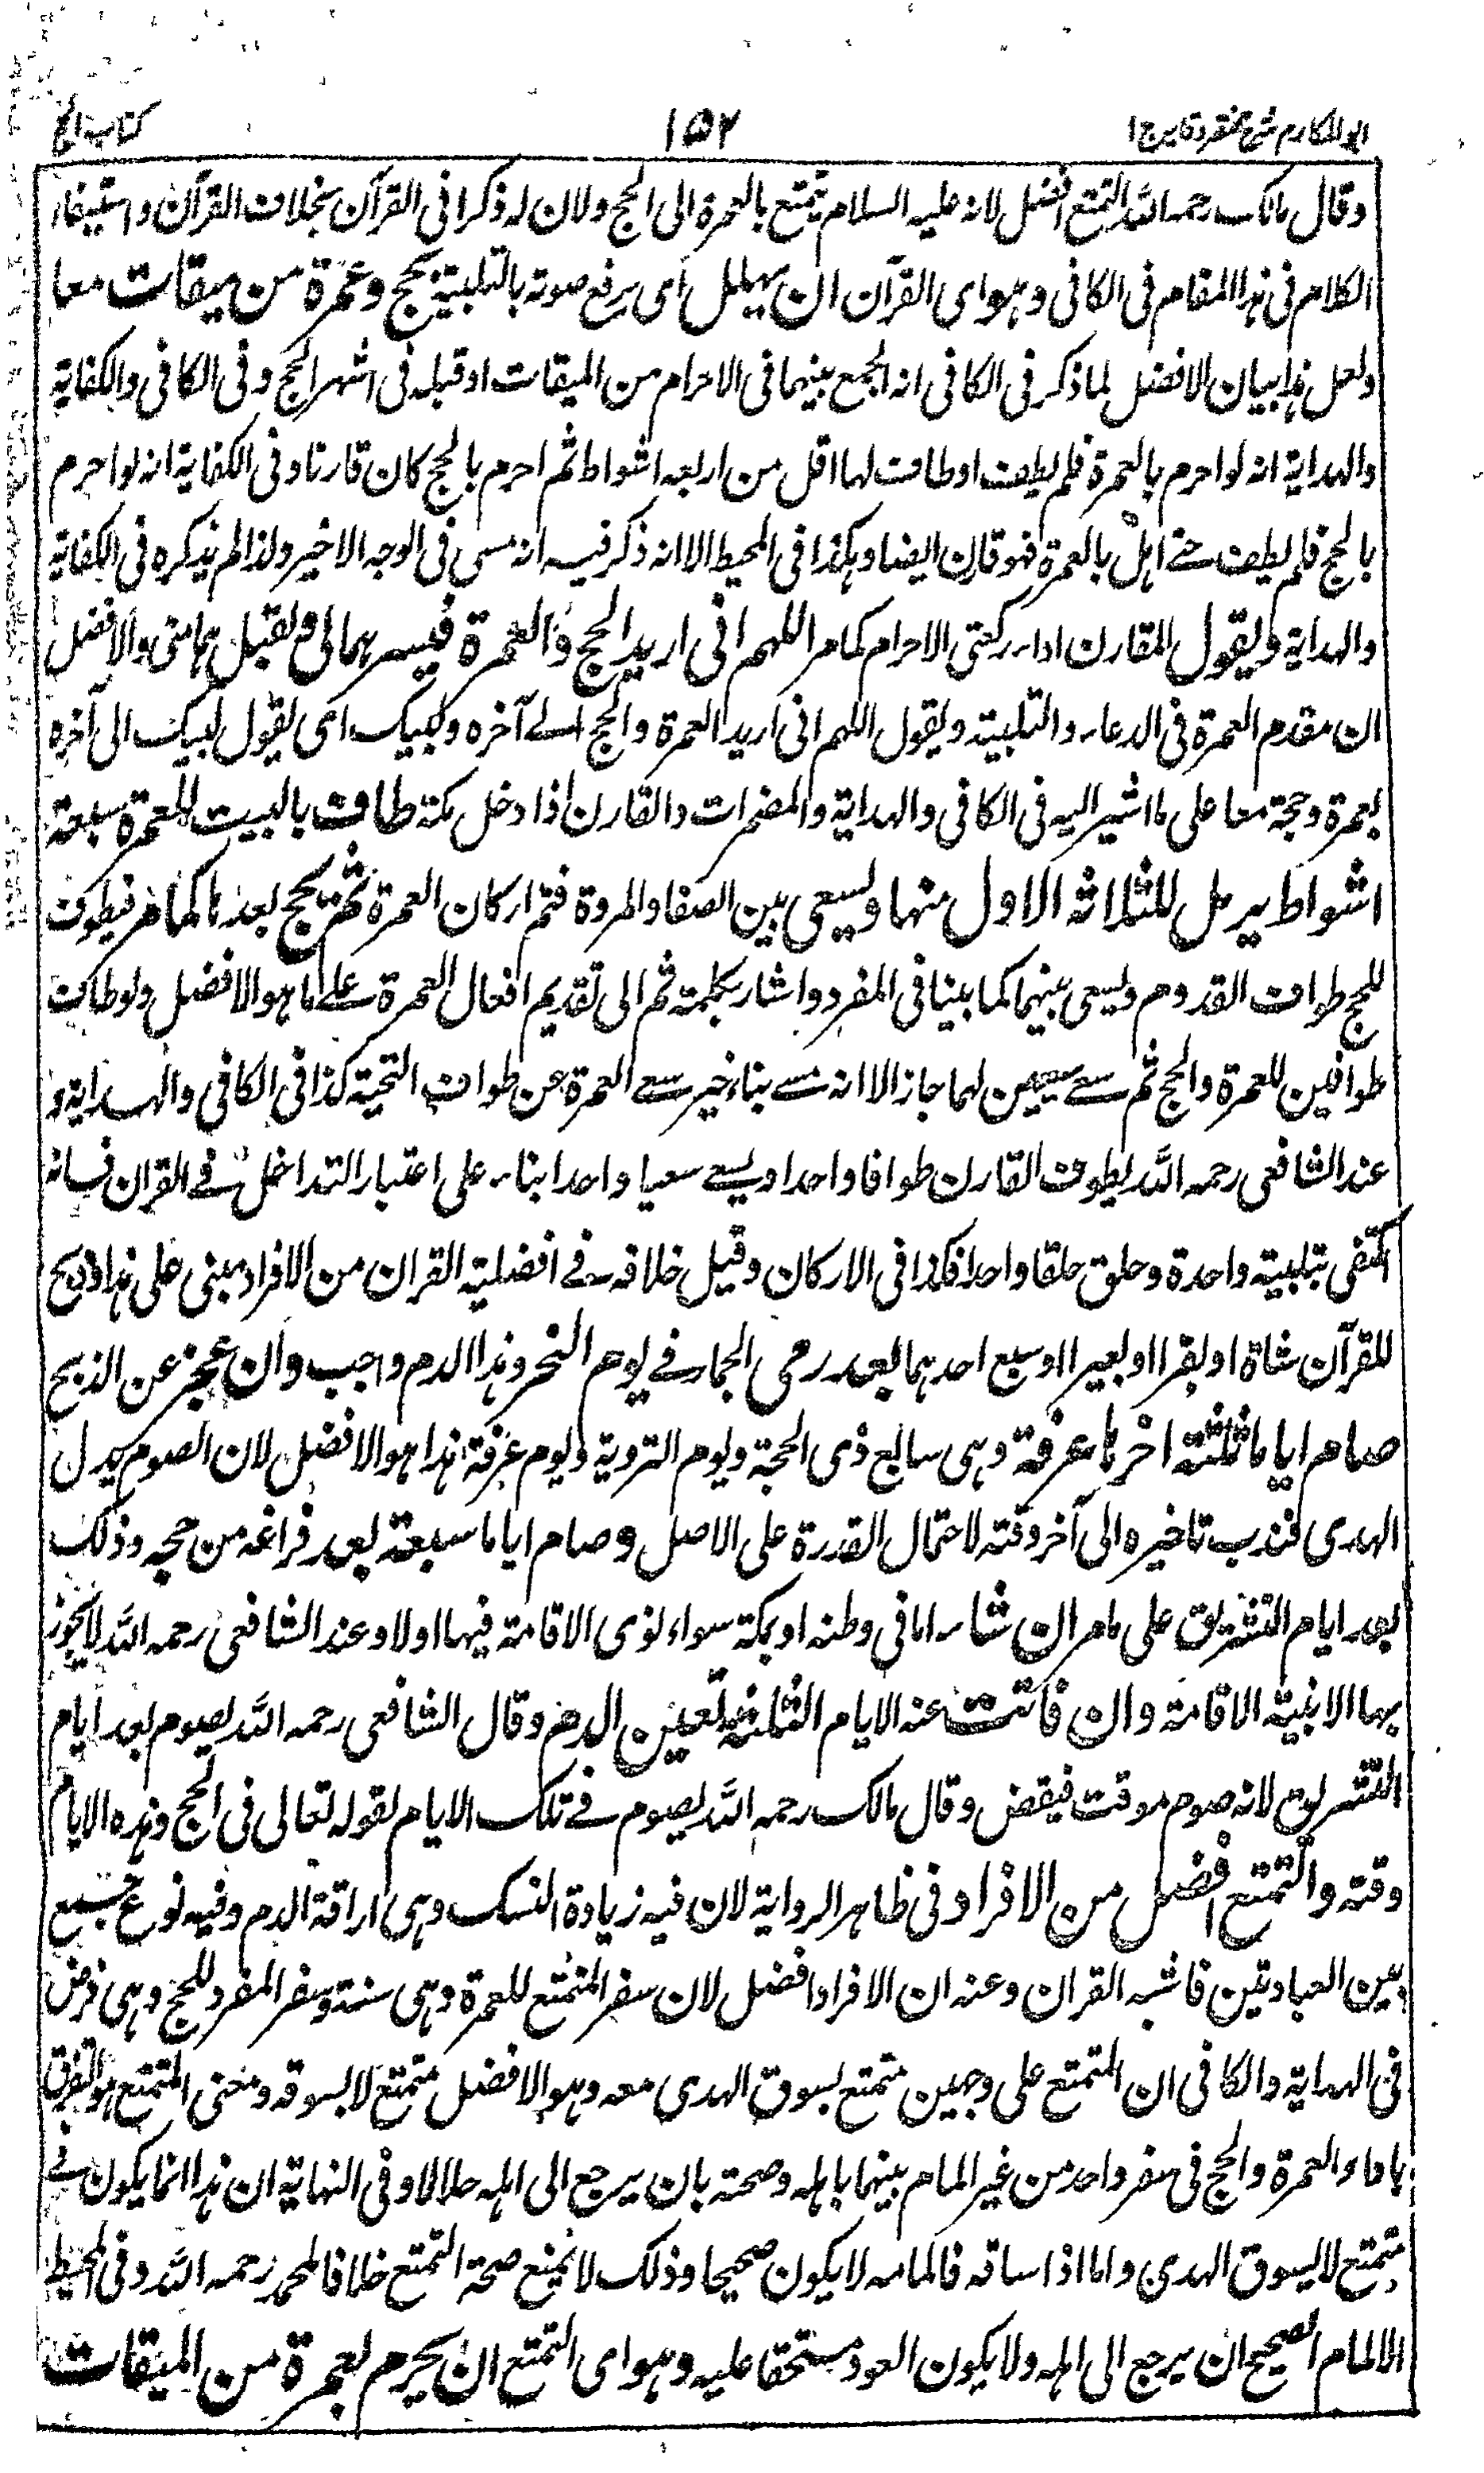 ابو المكارم شرح مختصر وقايه ج ١
١٥٢
كتاب الحج
وقال مالك رحمه الله التمتع افضل لانه عليه السلام تمتع بالعمرة الى الحج ولان له ذكرا فى القرآن بخلاف القرآن واستيفاء
الكلام فى هذا المقام فى الكافى وهو اى القرآن ان يهلل اى يرفع صوته بالتلبية بحج وعمرة من ميقات معا
ولعل هذا بيان الافضل لما ذكر فى الكافى انه الجمع بينهما فى الاحرام من الميقات او قبله فى اشهر الحج وفى الكافى والكفاية
والهداية انه لو احرم بالعمرة فلم يطف او طاف لها اقل من اربعه اشواط ثم احرم بالحج كان قارنا وفى الكفاية انه لو احرم
بالحج فلم يطف حتے اهل بالعمرة فهو قارن ايضا وهكذا فى المحيط الا انه ذكر فيه انه مسى فى الوجه الاخير ولذا لم يذكره فى الكفاية
والهداية ويقول المقارن اداء ركعتى الاحرام كما مر اللهم انى اريد الحج والعمرة فيسرهما لى وتقبلهما منى والافضل
ان مقدم العمرة فى الدعاء والتلبية ويقول اللهم انى اريد العمرة والحج الے آخره وكلبيك اى يقول لبيك الى آخره
بعمرة وحجة معا على ما اشير اليه فى الكافى والهداية والمضمرات والقارن اذا دخل مكة طاف بالبيت للعمرة سبعة
اشواط يرمل للثلاثه الاول منها ويسعى بين الصفا والمروة فتم اركان العمرة ثم يحج بعدها كما مر فيطوف
للحج طواف القدوم ويسعى بينهما كما بينا فى المفرد واشار بكلمة ثم الى تقديم افعال العمرة علے ما هو الافضل ولو طاف
طوافين للعمرة والحج ثم سعے سعيين لهما جاز الا انه مسے بتاخير سعے العمرة عن طواف التحية كذا فى الكافى والهداية و
عند الشافعى رحمه الله يطوف القارن طوافا واحدا ويسعے سعيا واحدا بناء على اعتبار التداخل فے القران فانه
اكتفى بتلبية واحدة وحلق حلقا واحدا فكذا فى الاركان وقيل خلافه فے افضلية القران من الافراد مبنى على هذا وذبح
للقرآن شاة او بقرا او بعيرا او سبع احدهما بعد رمى الجمار فے يوم النحر وهذا الدم واجب وان عجز عن الذبح
صام اياما ثلثة اخرها عرفة وهى سابع ذى الحجة ويوم التروية ويوم عرفة هذا هو الافضل لان الصوم بدل
الهدى فندب تاخيره الى آخر وقته لاحتمال القدرة على الاصل وصام اياما سبعة بعد فراغه من حجه وذلك
بعد ايام التشريق على ما مر ان شاء اما فى وطنه او بمكة سواء نوى الاقامة فيها اولا وعند الشافعى رحمه الله لا يجوز
بها الا بنية الاقامة وان فاتت عنه الايام الثلثة تعين الدم وقال الشافعى رحمه الله يصوم بعد ايام
التشريق لانه صوم موقت فيقض وقال مالك رحمه الله يصوم فے تلك الايام لقوله تعالى فى الحج وهذه الايام
وقته والتمتع افضل من الافراد فى ظاهر الرواية لان فيه زيادة النسك وهى اراقة الدم وفيه نوع جمع
بين العبادتين فاشبه القران وعنه ان الافراد افضل لان سفر المتمتع للعمرة وهى سنة وسفر المفرد للحج وهى فرض
فى الهداية والكافى ان المتمتع على وجهين متمتع يسوق الهدى معه وهو الافضل متمتع لا يسوقه ومعنى المتمتع هو الترفق
باداء العمرة والحج فى سفر واحد من غير المام بينهما باهله وصحته بان يرجع الى اهله حلالا وفى النهاية ان هذا انما يكون فے
متمتع لا يسوق الهدى واما اذا ساقه فالمامه لا يكون صحيحا وذلك لا يمنع صحة التمتع خلافا لمحمد رحمه الله وفى المحيط
الالمام الصحيح ان يرجع الى اهله ولا يكون العود مستحقا عليه وهو اى التمتع ان يحرم بعمرة من الميقات